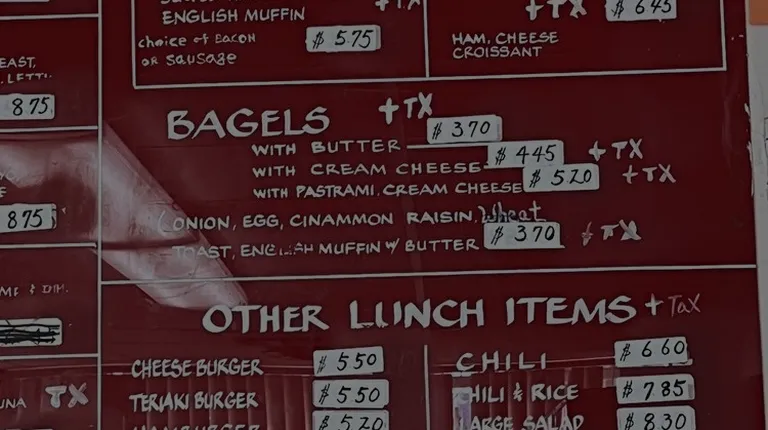 ENGLISH MUFFIN + TX
choice of BACON $ 5.75
OR SAUSAGE
+ TX $ 645
HAM, CHEESE
CROISSANT
EAST,
875
875
TX
BAGELS + TX
WITH BUTTER $ 370
WITH CREAM CHEESE $ 445 + TX
WITH PASTRAMI, CREAM CHEESE $ 520 + TX
(ONION, EGG, CINAMMON RAISIN, Wheat
TOAST, ENGLISH MUFFIN W/ BUTTER $ 370 + TX
OTHER LUNCH ITEMS + Tax
CHEESE BURGER $ 550
TERIAKI BURGER $ 550
HAMBURGER $ 520
CHILI $ 660
CHILI & RICE $ 785
LARGE SALAD $ 830